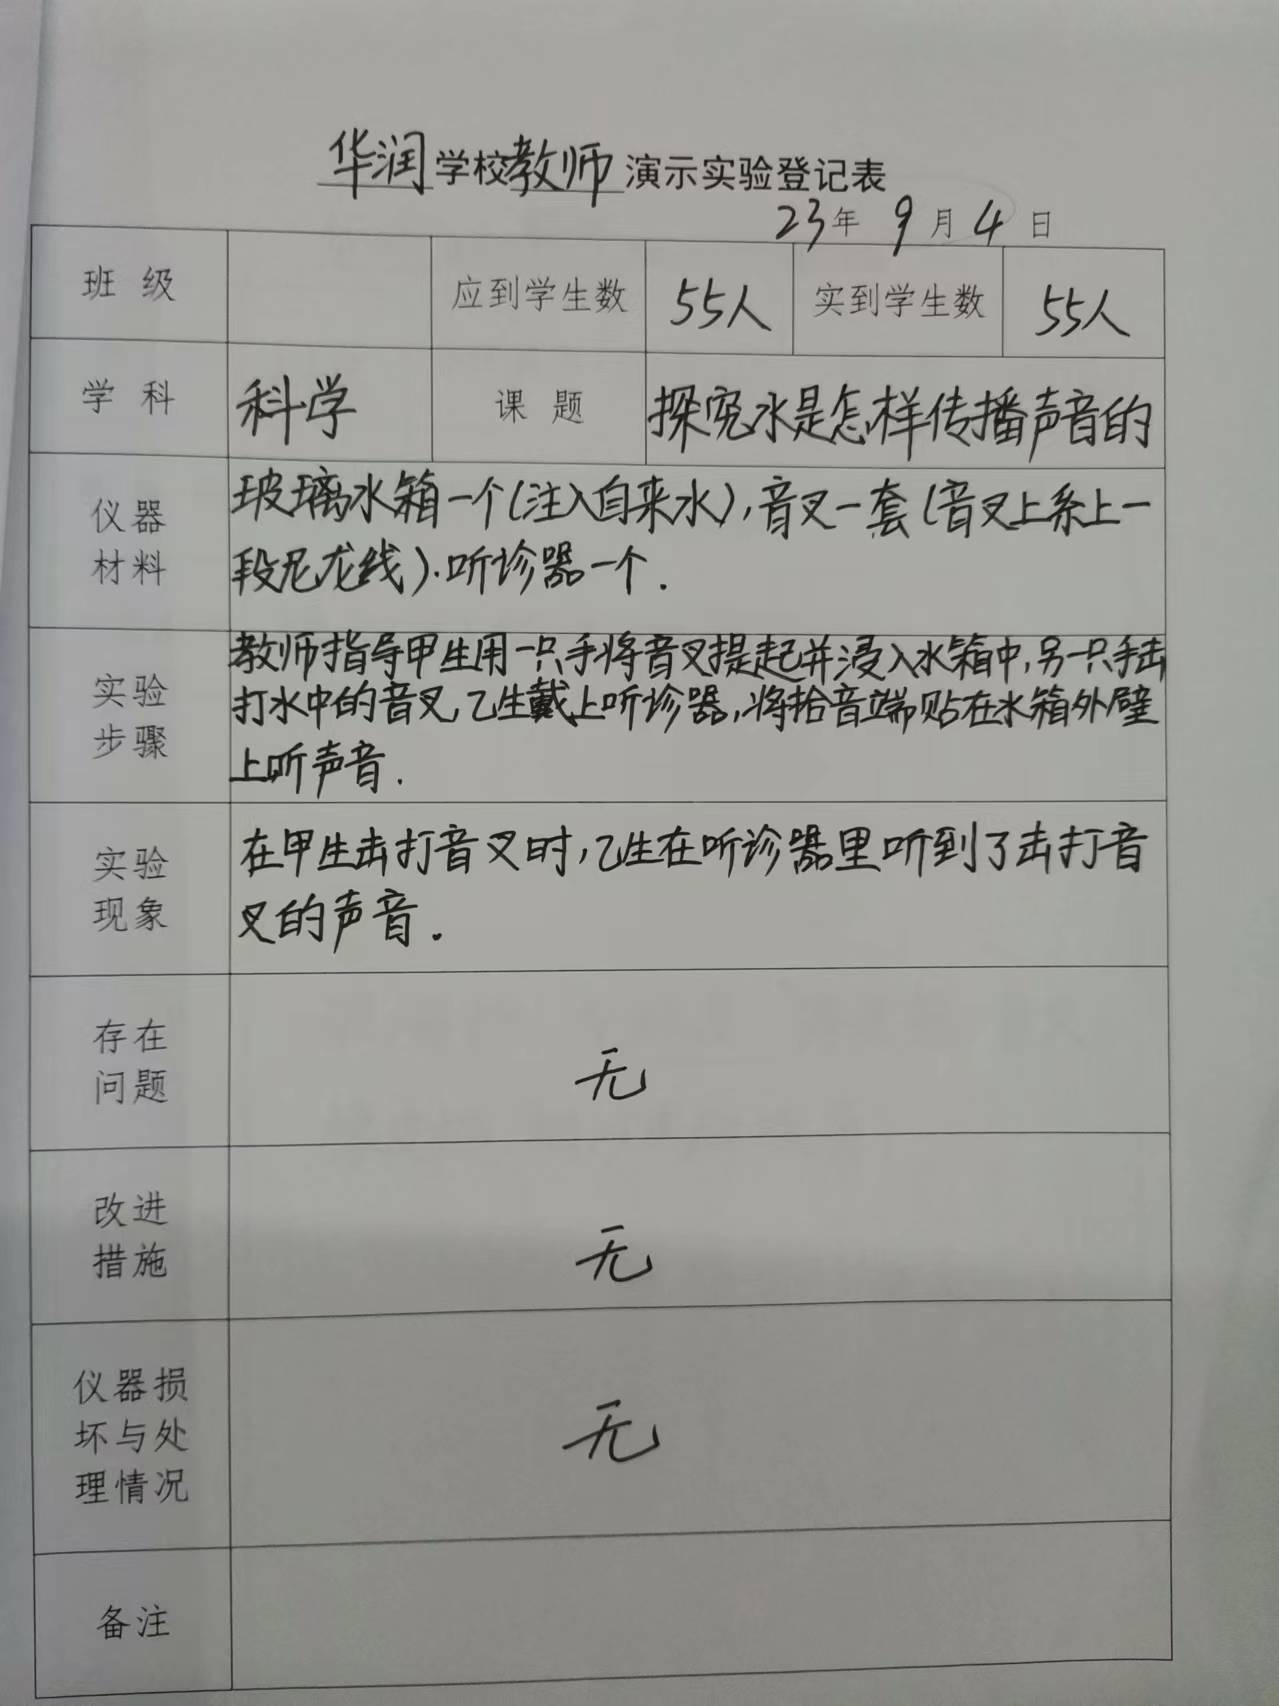 华润学校教师演示实验登记表
23年 9月4日
班 级 应到学生数 55人 实到学生数 55人
学 科 科学 课 题 探究水是怎样传播声音的
仪器
材料
玻璃水箱一个(注入自来水),音叉一套(音叉上系上一
段尼龙线).听诊器一个.
实验
步骤
教师指导甲生用一只手将音叉提起并浸入水箱中,另一只手击
打水中的音叉,乙生戴上听诊器,将拾音端贴在水箱外壁
上听声音.
实验
现象
在甲生击打音叉时,乙生在听诊器里听到了击打音
叉的声音.
存在
问题
无
改进
措施
无
仪器损
坏与处
理情况
无
备注